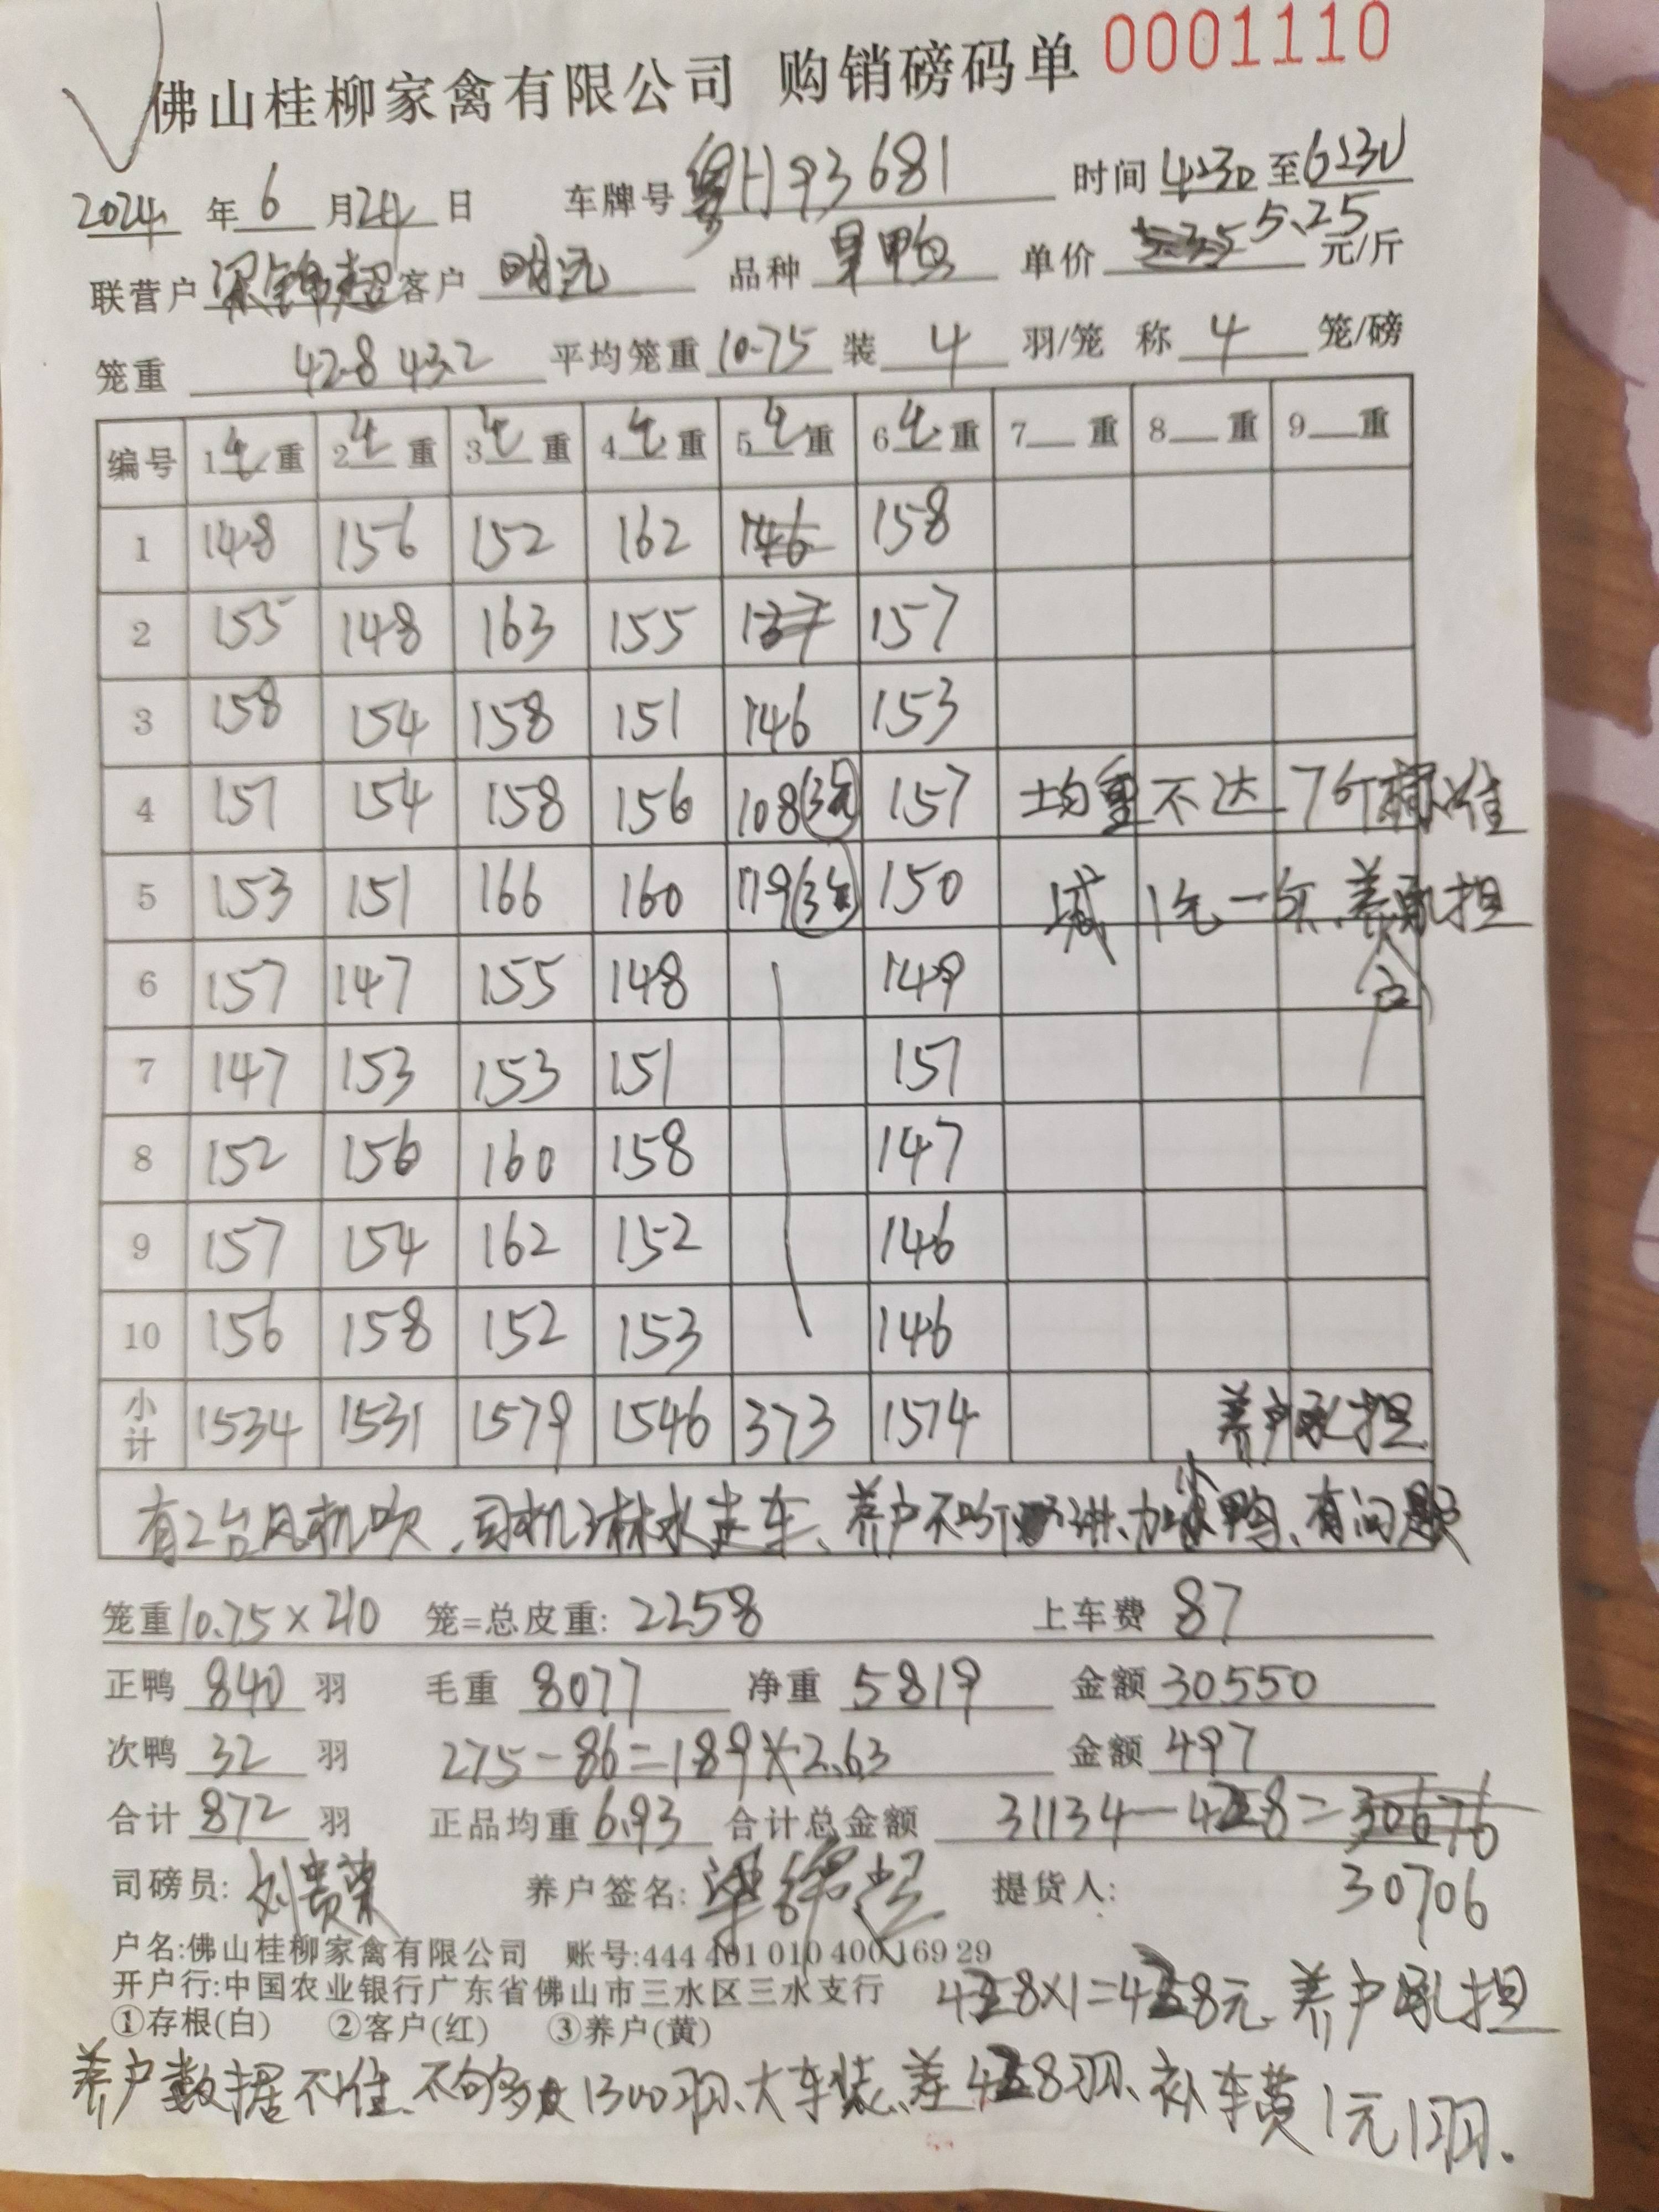 佛山桂柳家禽有限公司 购销磅码单 0001110
2024 年 6 月 24 日 车牌号 粤H93681 时间 4:30 至 6:30
联营户 梁锦超 客户 明记 品种 旱鸭 单价 5.25 元/斤
笼重 42.8 43.2 平均笼重 10.75 装 4 羽/笼 称 4 笼/磅
编号 1 七 重 2 七 重 3 七 重 4 七 重 5 七 重 6 七 重 7 重 8 重 9 重
1 148 156 152 162 146 158
2 155 148 163 155 137 157
3 158 154 158 151 146 153
4 151 154 158 156 108 157 均重不达7斤标准
5 153 151 166 160 119 150 减1毛一斤、养户承担
6 157 147 155 148 149
7 147 153 153 151 151
8 152 156 160 158 147
9 157 154 162 152 146
10 156 158 152 153 146
小计 1534 1531 1579 1546 373 1514 养户承担
有2台风机吹、司机淋水走车、养户不听讲、加小鸭、有问题
笼重 10.75×210 笼=总皮重: 2258 上车费 87
正鸭 840 羽 毛重 8077 净重 5819 金额 30550
次鸭 32 羽 275-86=189×2.63 金额 497
合计 872 羽 正品均重 6.93 合计总金额 31134-428=30676
司磅员: 刘贵荣 养户签名: 梁锦超 提货人: 30706
户名:佛山桂柳家禽有限公司 账号:444 401 010 400 169 29
开户行:中国农业银行广东省佛山市三水区三水支行 428×1=428元 养户承担
①存根(白) ②客户(红) ③养户(黄)
养户数据不准、不够多女1300羽、大车装、差428羽、补车费1元1羽.